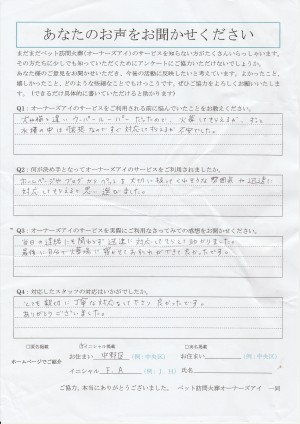 あなたのお声をお聞かせください
まだまだペット訪問火葬(オーナーズアイ)のサービスを知らない方がたくさんいらっしゃいます。
その方たちに少しでも知っていただくためにアンケートにご協力いただけないでしょうか。
あなた様のご意見をお聞かせいただき、今後の活動に反映したいと考えています。よかったこと、
嬉しかったこと、どのような些細なことでもけっこうです。ぜひご協力をよろしくお願いいたします。
(できるだけ具体的に書いていただけると助かります)
Q1:オーナーズアイのサービスをご利用される前に悩んでいたことをお教えください。
犬や猫と違い ウーパールーパー だったので、火葬してもらえるか、
Q2:何が決め手となってオーナーズアイのサービスをご利用されましたか。
ホームページやブログから ペットを大切に扱ってくれそうな雰囲気や
対応してもらえると思い選びました。
Q3:オーナーズアイのサービスを実際にご利用なさってみての感想をお聞かせください。
当日の連絡にも関わらず 迅速に対応してもらい助かりました。
Q4:対応したスタッフの対応はいかがでしたか。
とても親切に丁寧な対応をして下さり 良かったです。
ありがとうございました。
□匿名掲載 ☑イニシャル掲載 □実名掲載
ホームページでご紹介
お住まい 中野区 (例:中央区) お住まい (例:中央区)
イニシャル F.A (例:J.H) 氏名
ご協力、本当にありがとうございました。 ペット訪問火葬オーナーズアイ 一同